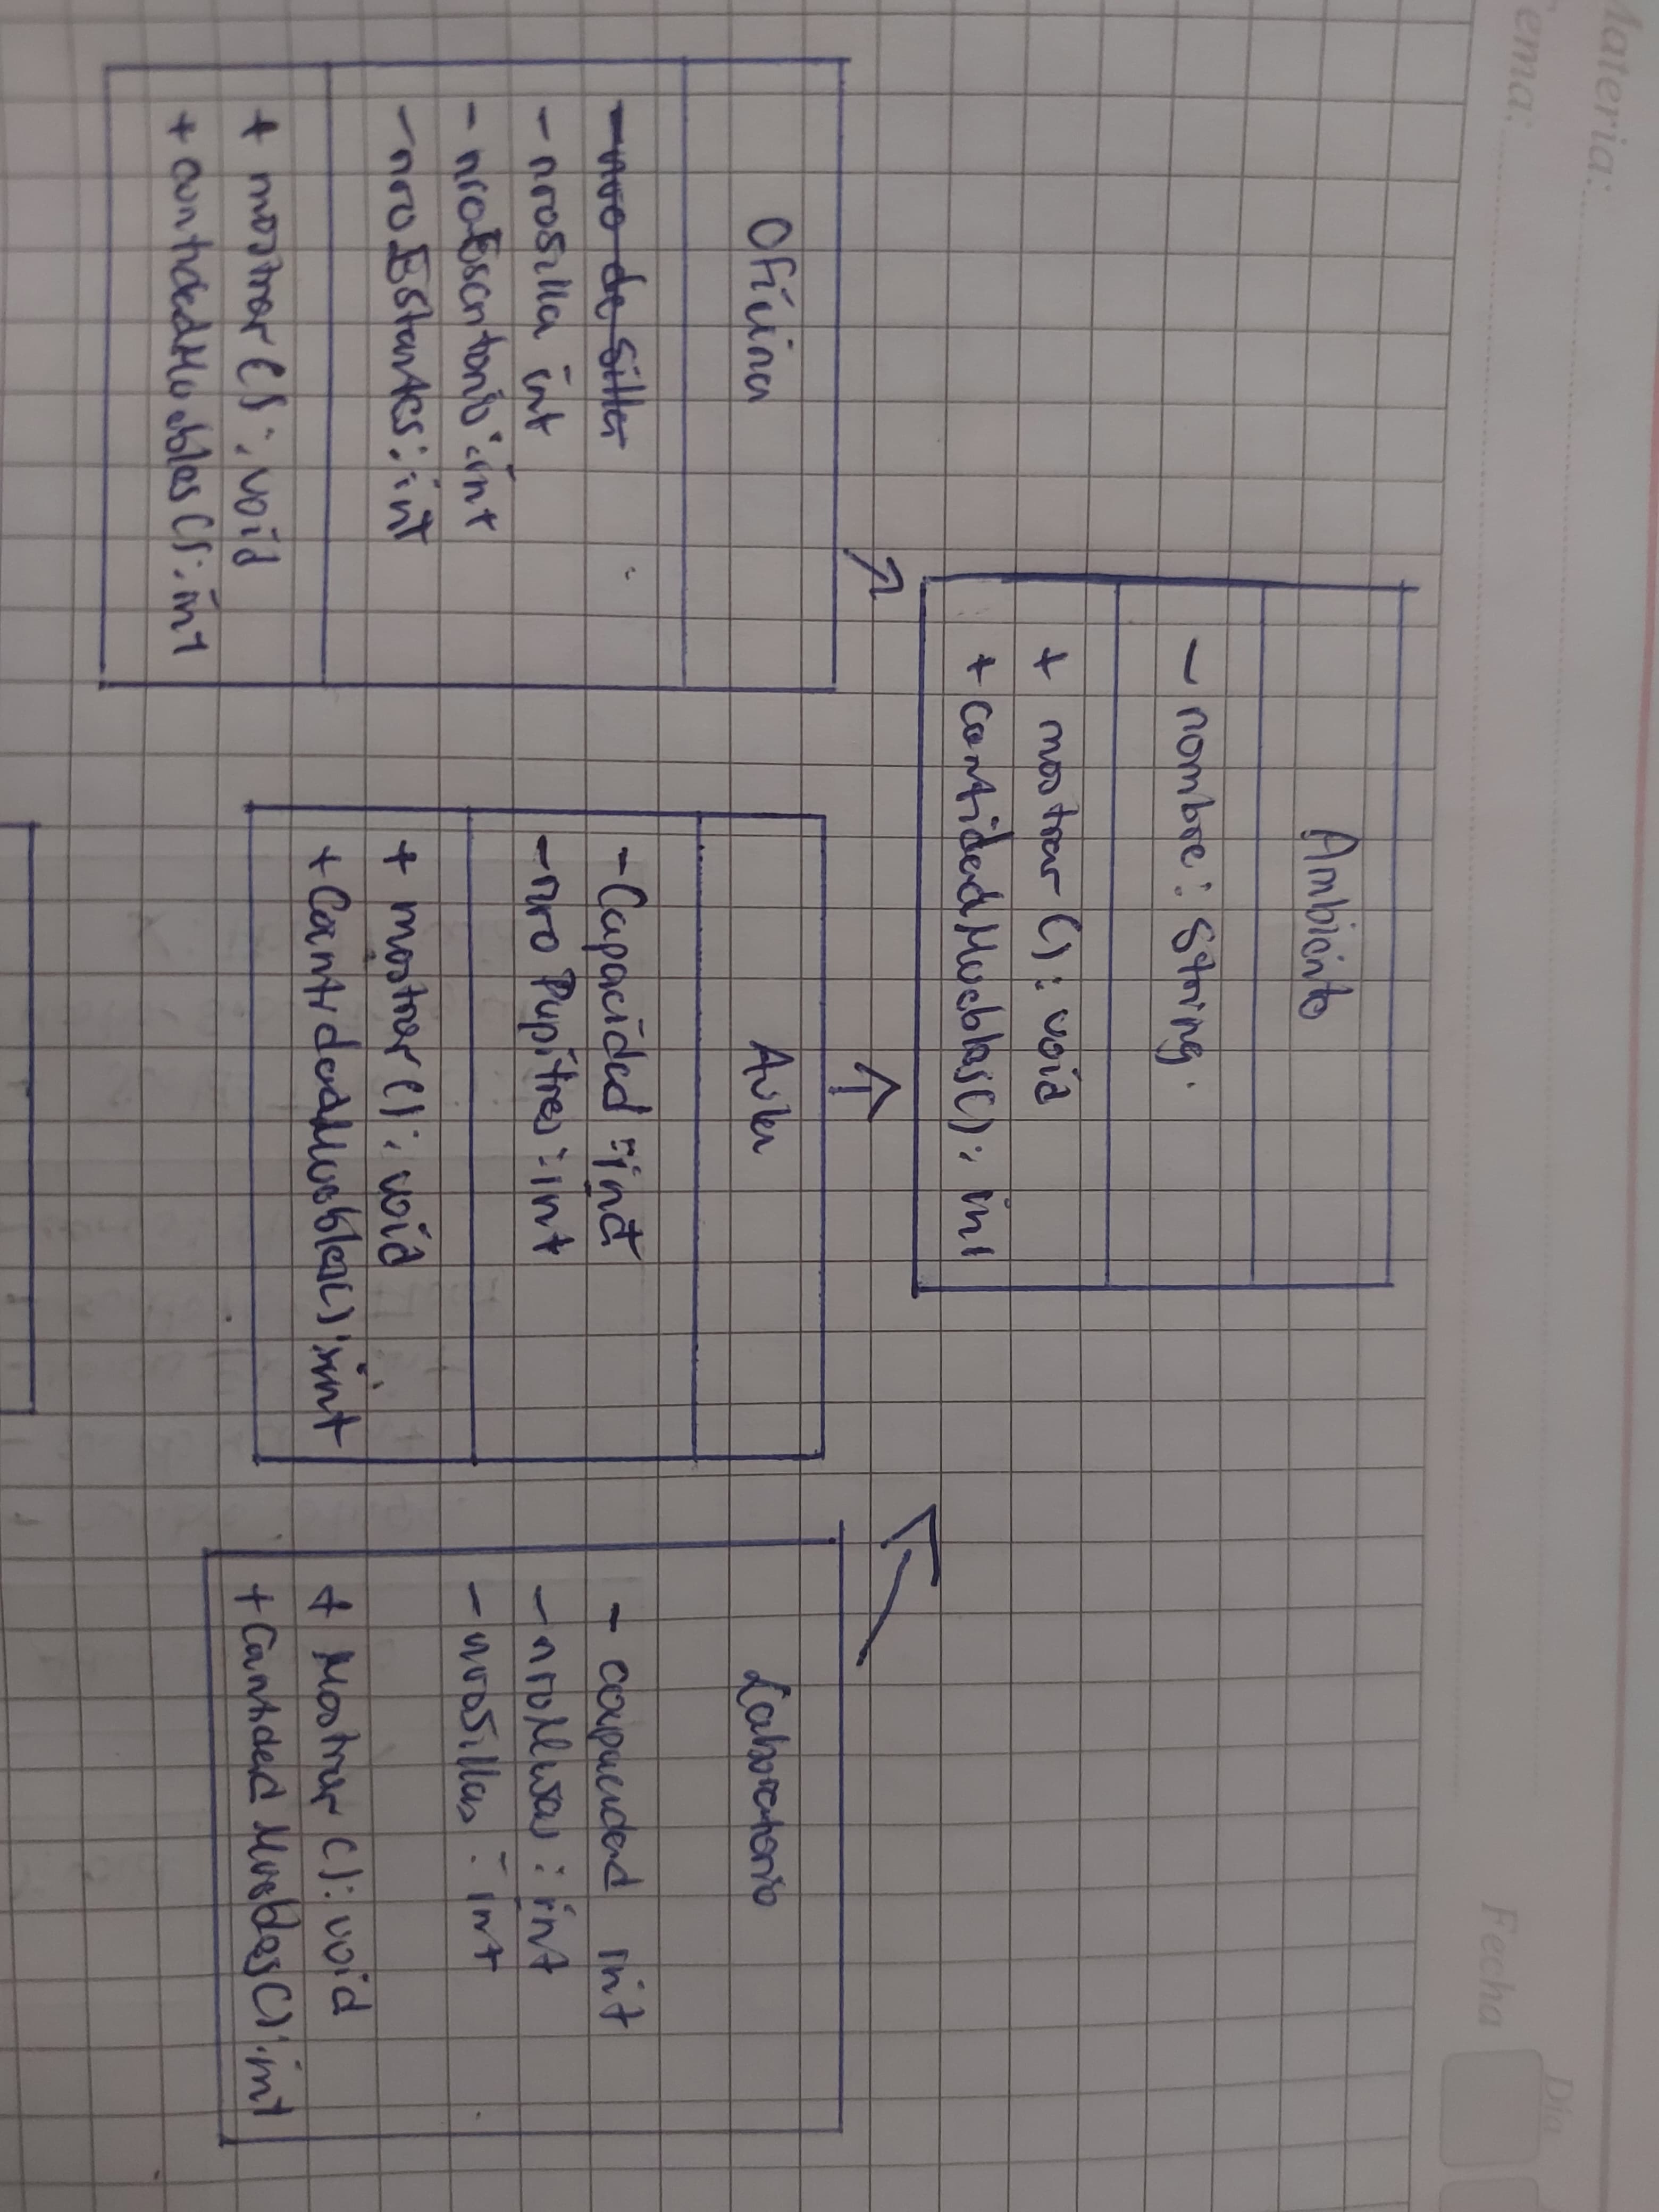 Materia:
Tema:
Fecha
Día
Ambiente
- nombre: String.
+ mostrar(): void
+ cantidadMuebles(): int
Oficina
- nro de silla
- nroSilla int
- nroEscritorio: int
- nroEstantes: int
+ mostrar(): void
+ cantidadMuebles(): int
Aula
- Capacidad: int
- nroPupitres: int
+ mostrar(): void
+ CantidadMuebles(): int
Laboratorio
- capacidad int
- nroMesas: int
- nroSillas: int
+ Mostrar(): void
+ CantidadMuebles(): int